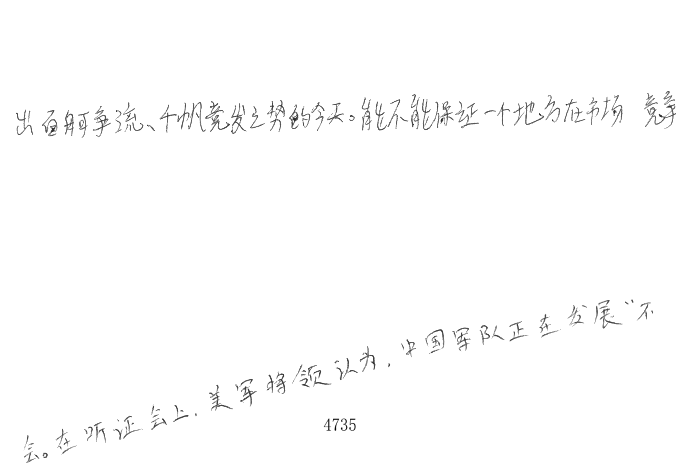 出百舸争流、千帆竞发之势的今天。能不能保证一个地方在市场 竞争
会。在听证会上,美军将领认为,中国军队正在发展“不
4735